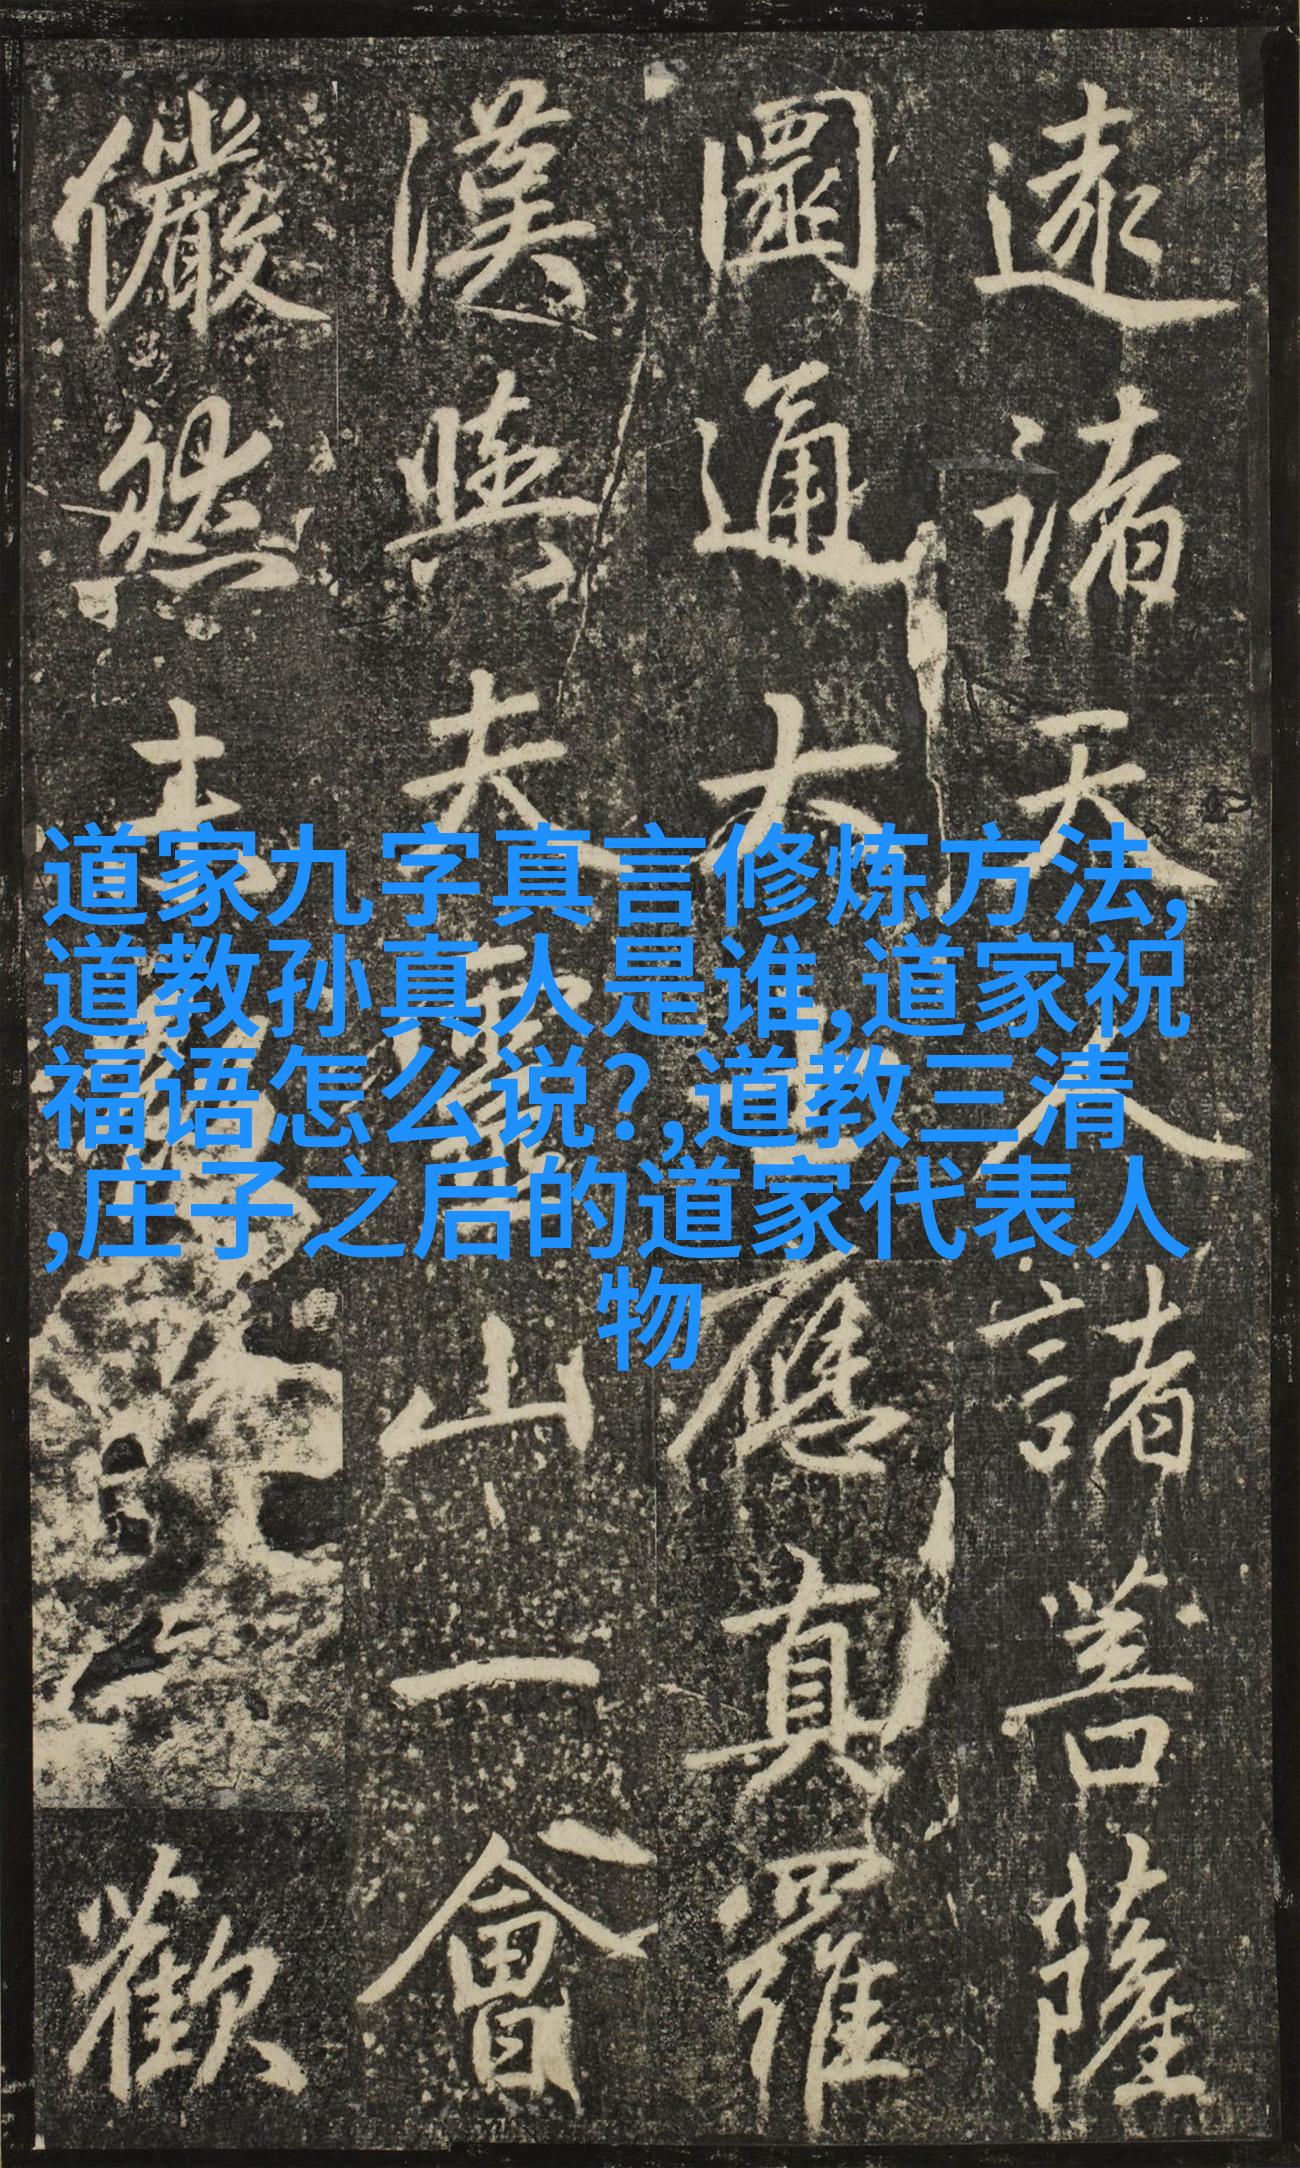 遠諸天人諸菩薩
圜通大士應真羅
漢與夫靈山一會
儼然歡
道家九字真言修炼方法,
道教孙真人是谁,道家祝
福语怎么说?,道教三清
,庄子之后的道家代表人
物